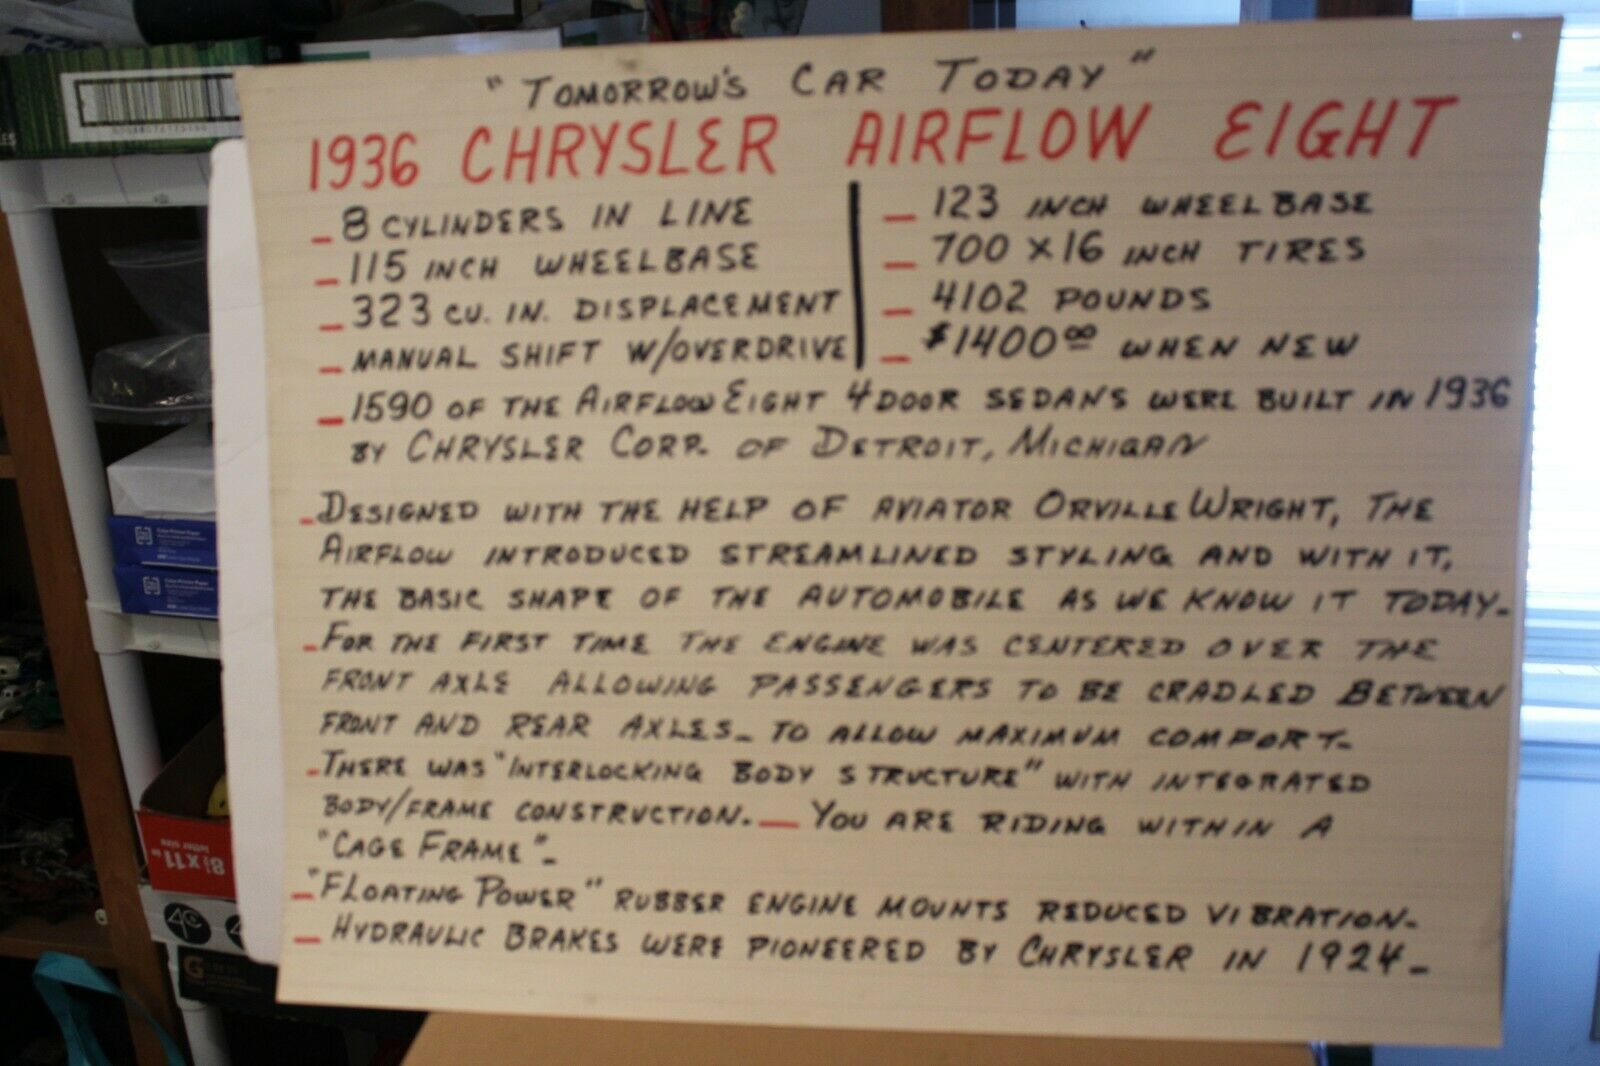 "TOMORROW'S CAR TODAY"
1936 CHRYSLER AIRFLOW EIGHT
- 8 CYLINDERS IN LINE
- 115 INCH WHEELBASE
- 323 CU. IN. DISPLACEMENT
- MANUAL SHIFT W/OVERDRIVE
- 123 INCH WHEELBASE
- 700 X 16 INCH TIRES
- 4102 POUNDS
- $1400.00 WHEN NEW
- 1590 OF THE AIRFLOW EIGHT 4 DOOR SEDANS WERE BUILT IN 1936
BY CHRYSLER CORP. OF DETROIT, MICHIGAN
- DESIGNED WITH THE HELP OF AVIATOR ORVILLE WRIGHT, THE
AIRFLOW INTRODUCED STREAMLINED STYLING AND WITH IT,
THE BASIC SHAPE OF THE AUTOMOBILE AS WE KNOW IT TODAY-
- FOR THE FIRST TIME THE ENGINE WAS CENTERED OVER THE
FRONT AXLE ALLOWING PASSENGERS TO BE CRADLED BETWEEN
FRONT AND REAR AXLES- TO ALLOW MAXIMUM COMFORT-
- THERE WAS "INTERLOCKING BODY STRUCTURE" WITH INTEGRATED
BODY/FRAME CONSTRUCTION. - YOU ARE RIDING WITHIN A
"CAGE FRAME"-
- "FLOATING POWER" RUBBER ENGINE MOUNTS REDUCED VIBRATION-
- HYDRAULIC BRAKES WERE PIONEERED BY CHRYSLER IN 1924-
8½ x 11"
letter size